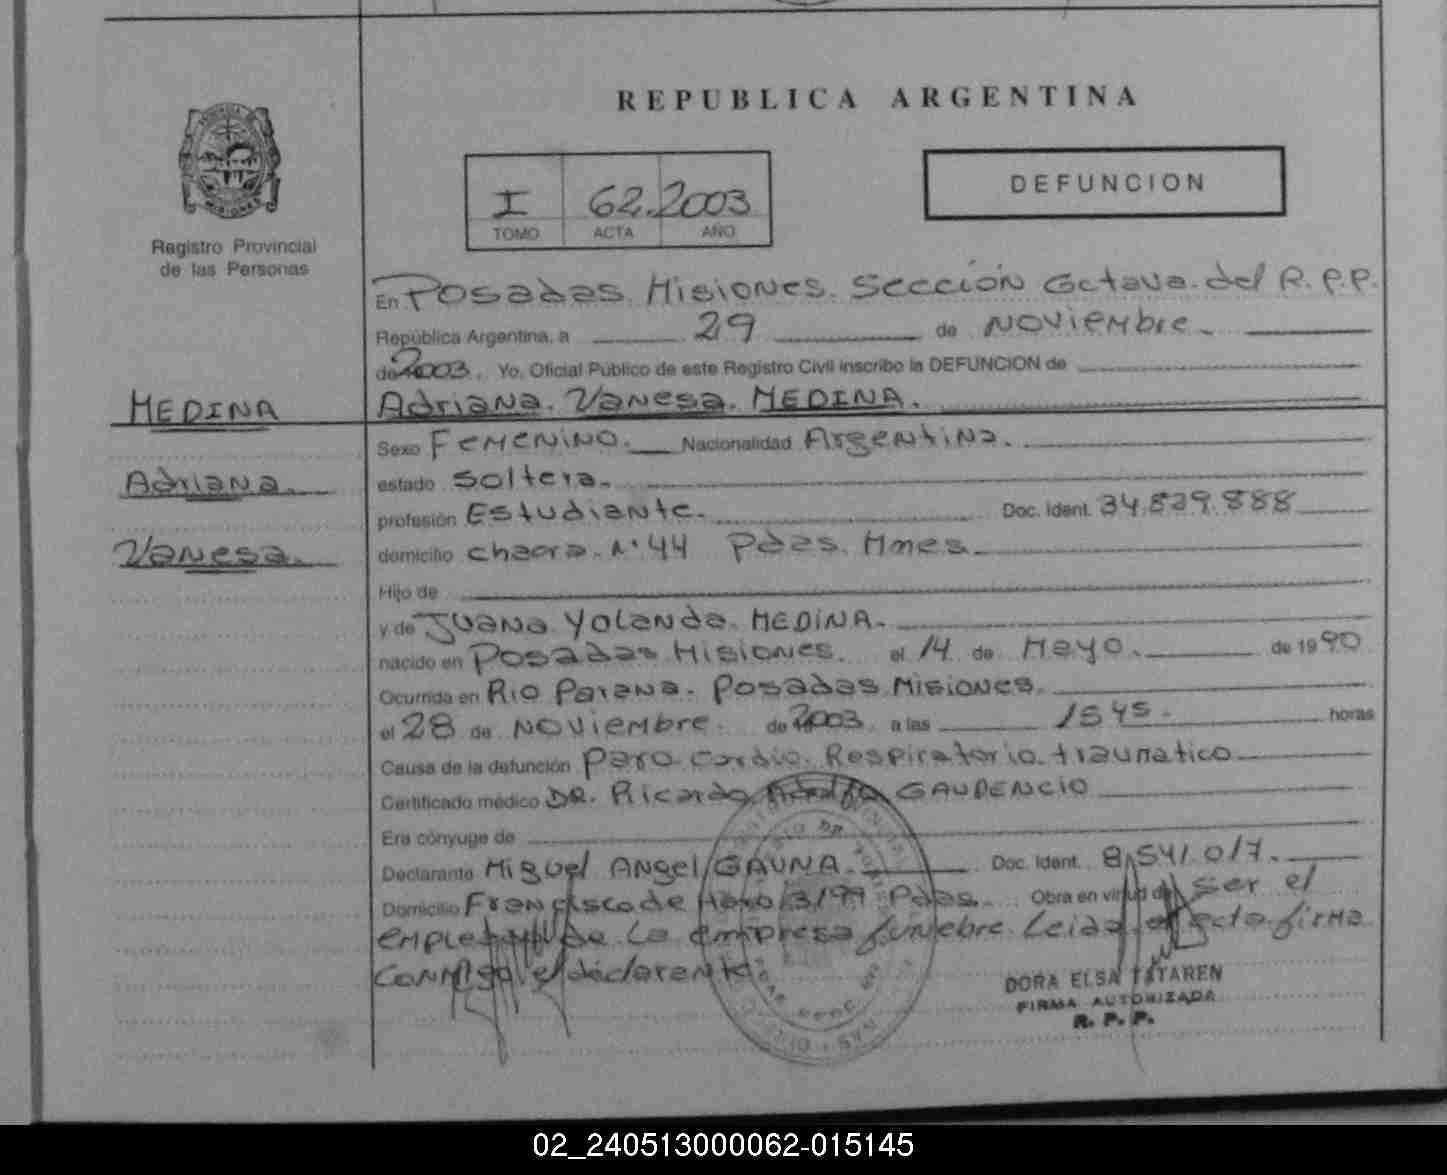 REPUBLICA ARGENTINA
I 62. 2003
TOMO ACTA AÑO
DEFUNCION
MISIONES
Registro Provincial
de las Personas
En Posadas. Misiones. Sección Octava. del R.P.P.
República Argentina, a 29 de Noviembre.
de 2003. Yo, Oficial Público de este Registro Civil inscribo la DEFUNCION de
MEDINA
Adriana. Vanesa. MEDINA.
Sexo Femenino. Nacionalidad Argentina.
Adriana.
estado Soltera.
profesión Estudiante. Doc. Ident. 34.839.888
Vanesa.
domicilio chacra. N° 44 Pdas. Mnes.
Hijo de
y de Juana Yolanda. MEDINA.
nacido en Posadas Misiones. el 14 de Mayo. de 1990
Ocurrida en Rio Parana. Posadas Misiones.
el 28 de Noviembre. de 2003 a las 1545. horas
Causa de la defunción paro cardio. Respiratorio. traumatico
Certificado médico DR. Ricardo Adolfo GAUDENCIO
Era cónyuge de
Declarante Miguel ANGEL GAUNA. Doc. Ident. 8.541.017.
Domicilio Francisco de Haro 3199 Pdas. Obra en virtud de ser el
empleado de la empresa funebre. Leida el acta firma
conmigo el declarante
DORA ELSA TATAREN
FIRMA AUTORIZADA
R. P. P.
02_240513000062-015145